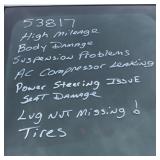 53817
High Mileage
Body Damage
Suspension Problems
AC Compressor Leaking
Power Steering Issue
Seat Damage
Lug Nut Missing!
Tires